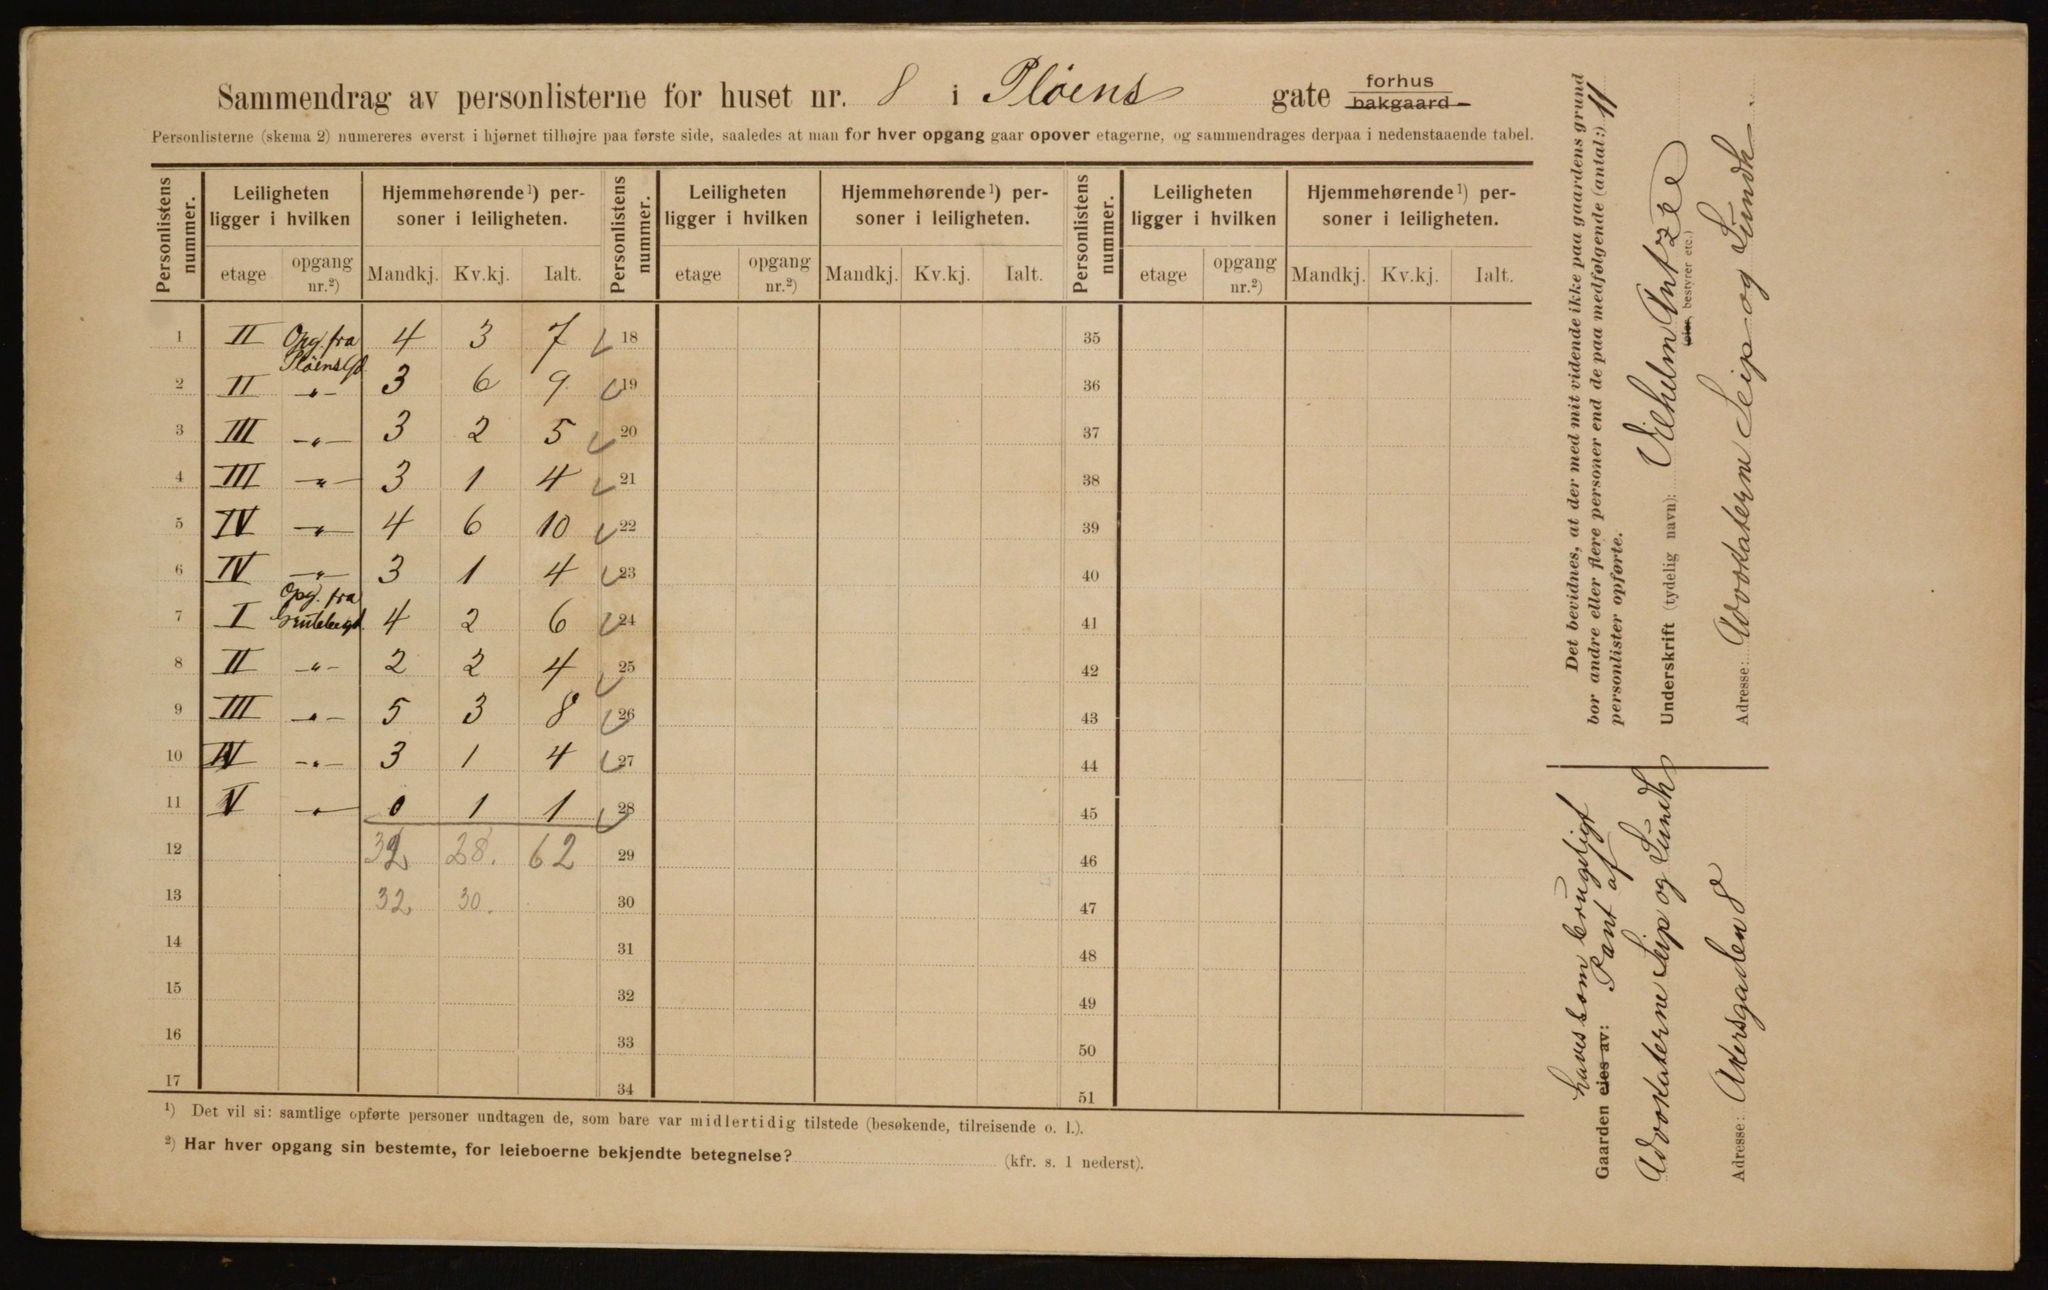 Sammendrag av personlisterne for huset nr. 8 i Pløens gate forhus bakgaard
Personlisterne (skema 2) numereres øverst i hjørnet tilhøjre paa første side, saaledes at man for hver opgang gaar opover etagerne, og sammendrages derpaa i nedenstaaende tabel.
Personlistens nummer. Leiligheten ligger i hvilken Hjemmehørende¹) personer i leiligheten. Personlistens nummer. Leiligheten ligger i hvilken Hjemmehørende¹) personer i leiligheten. Personlistens nummer. Leiligheten ligger i hvilken Hjemmehørende¹) personer i leiligheten.
etage opgang nr.²) Mandkj. Kv.kj. Ialt. etage opgang nr.²) Mandkj. Kv.kj. Ialt. etage opgang nr.²) Mandkj. Kv.kj. Ialt.
1 II Opg. fra Pløensgd. 4 3 7 18 35
2 II -„- 3 6 9 19 36
3 III -„- 3 2 5 20 37
4 III -„- 3 1 4 21 38
5 IV -„- 4 6 10 22 39
6 IV -„- 3 1 4 23 40
7 I Opg. fra 4 2 6 24 41
8 II -„- 2 2 4 25 42
9 III -„- 5 3 8 26 43
10 IV -„- 3 1 4 27 44
11 V -„- 0 1 1 28 45
12 32 28. 62 29 46
13 32 30. 30 47
14 31 48
15 32 49
16 33 50
17 34 51
¹) Det vil si: samtlige opførte personer undtagen de, som bare var midlertidig tilstede (besøkende, tilreisende o. l.).
²) Har hver opgang sin bestemte, for leieboerne bekjendte betegnelse? (kfr. s. 1 nederst).
Det bevidnes, at der med mit vidende ikke paa gaardens grund
bor andre eller flere personer end de paa medfølgende (antal:) 11
personlister opførte.
Underskrift (tydelig navn): Vilhelm Antzée
(eier, bestyrer etc.)
Adresse: Advokaterne Seip og Lundh
haves som brugeligt
Gaarden eies av: Pant af
Advokaterne Seip og Lundh
Adresse: Akersgaden 8